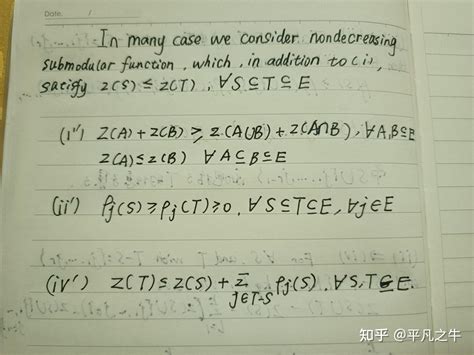 Date. /
In many case we consider nondecreasing
submodular function, which, in addition to (i),
satify z(S) ≤ z(T), ∀S⊆T⊆E
(i') z(A)+z(B) ≥ z(A∪B)+z(A∩B), ∀A,B⊆E
z(A)≤z(B) ∀A⊆B⊆E
(ii') ρj(S)≥ρj(T)≥0, ∀S⊆T⊆E, ∀j∈E
(iv') z(T)≤z(S)+Σ j∈T-S ρj(S), ∀S,T⊆E.
知乎 @平凡之牛